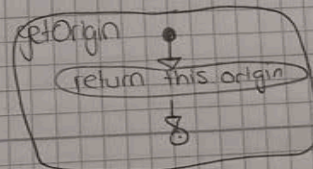 getOrigin
return this origin